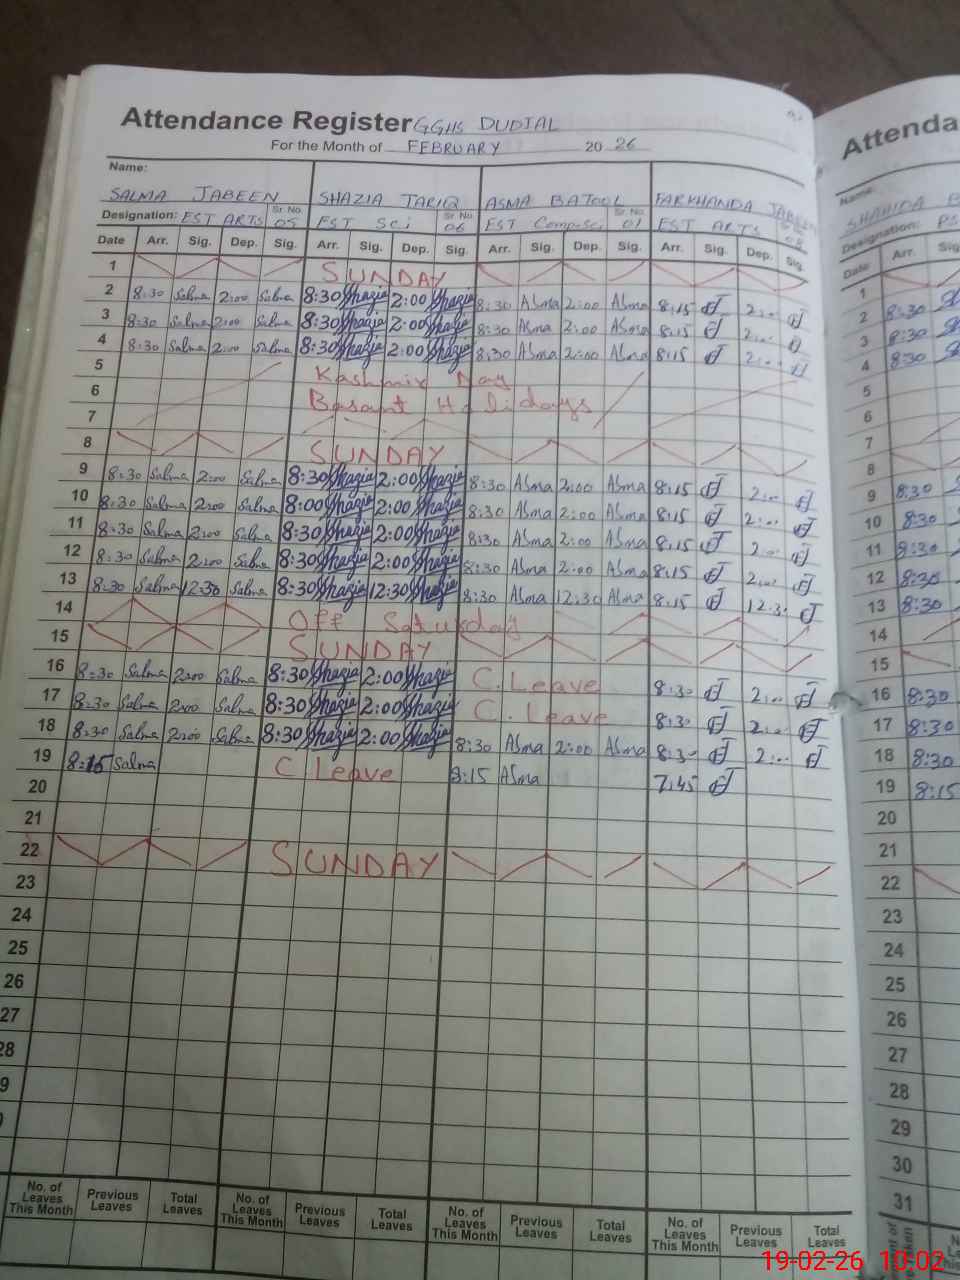 Attendance Register GGHS DUDIAL
For the Month of FEBRUARY 2026
Name:
SALMA JABEEN SHAZIA TARIQ ASMA BATOOL FARKHANDA
Designation: EST ARTS Sr. No. 05 EST Sci Sr. No. 06 EST Comp.Sci Sr. No. 01 EST ARTS
Date Arr. Sig. Dep. Sig. Arr. Sig. Dep. Sig. Arr. Sig. Dep. Sig. Arr. Sig. Dep. Sig.
1 SUNDAY
2 8:30 Salma 2:00 Salma 8:30 Shazia 2:00 Shazia 8:30 Asma 2:00 Asma 8:15 2:00
3 8:30 Salma 2:00 Salma 8:30 Shazia 2:00 Shazia 8:30 Asma 2:00 Asma 8:15 2:00
4 8:30 Salma 2:00 Salma 8:30 Shazia 2:00 Shazia 8:30 Asma 2:00 Asma 8:15 2:00
5 Kashmir Day
6 Basant Holidays
7
8 SUNDAY
9 8:30 Salma 2:00 Salma 8:30 Shazia 2:00 Shazia 8:30 Asma 2:00 Asma 8:15 2:00
10 8:30 Salma 2:00 Salma 8:00 Shazia 2:00 Shazia 8:30 Asma 2:00 Asma 8:15 2:00
11 8:30 Salma 2:00 Salma 8:30 Shazia 2:00 Shazia 8:30 Asma 2:00 Asma 8:15 2:00
12 8:30 Salma 2:00 Salma 8:30 Shazia 2:00 Shazia 8:30 Asma 2:00 Asma 8:15 2:00
13 8:30 Salma 12:30 Salma 8:30 Shazia 12:30 Shazia 8:30 Asma 12:30 Asma 8:15 12:30
14 Off Saturday
15 SUNDAY
16 8:30 Salma 2:00 Salma 8:30 Shazia 2:00 Shazia C. Leave 8:30 2:00
17 8:30 Salma 2:00 Salma 8:30 Shazia 2:00 Shazia C. Leave 8:30 2:00
18 8:30 Salma 2:00 Salma 8:30 Shazia 2:00 Shazia 8:30 Asma 2:00 Asma 8:30 2:00
19 8:15 Salma C Leave 8:15 Asma 7:45
20
21
22 SUNDAY
23
24
25
26
27
28
9
No. of Leaves This Month Previous Leaves Total Leaves No. of Leaves This Month Previous Leaves Total Leaves No. of Leaves This Month Previous Leaves Total Leaves No. of Leaves This Month Previous Leaves Total Leaves
Attenda
Name:
SHAHIDA
Designation:
Date Arr.
1
2 8:30
3 8:30
4 8:30
5
6
7
8
9 8:30
10 8:30
11 8:30
12 8:30
13 8:30
14
15
16 8:30
17 8:30
18 8:30
19 8:15
20
21
22
23
24
25
26
27
28
29
30
31
19-02-26 10:02